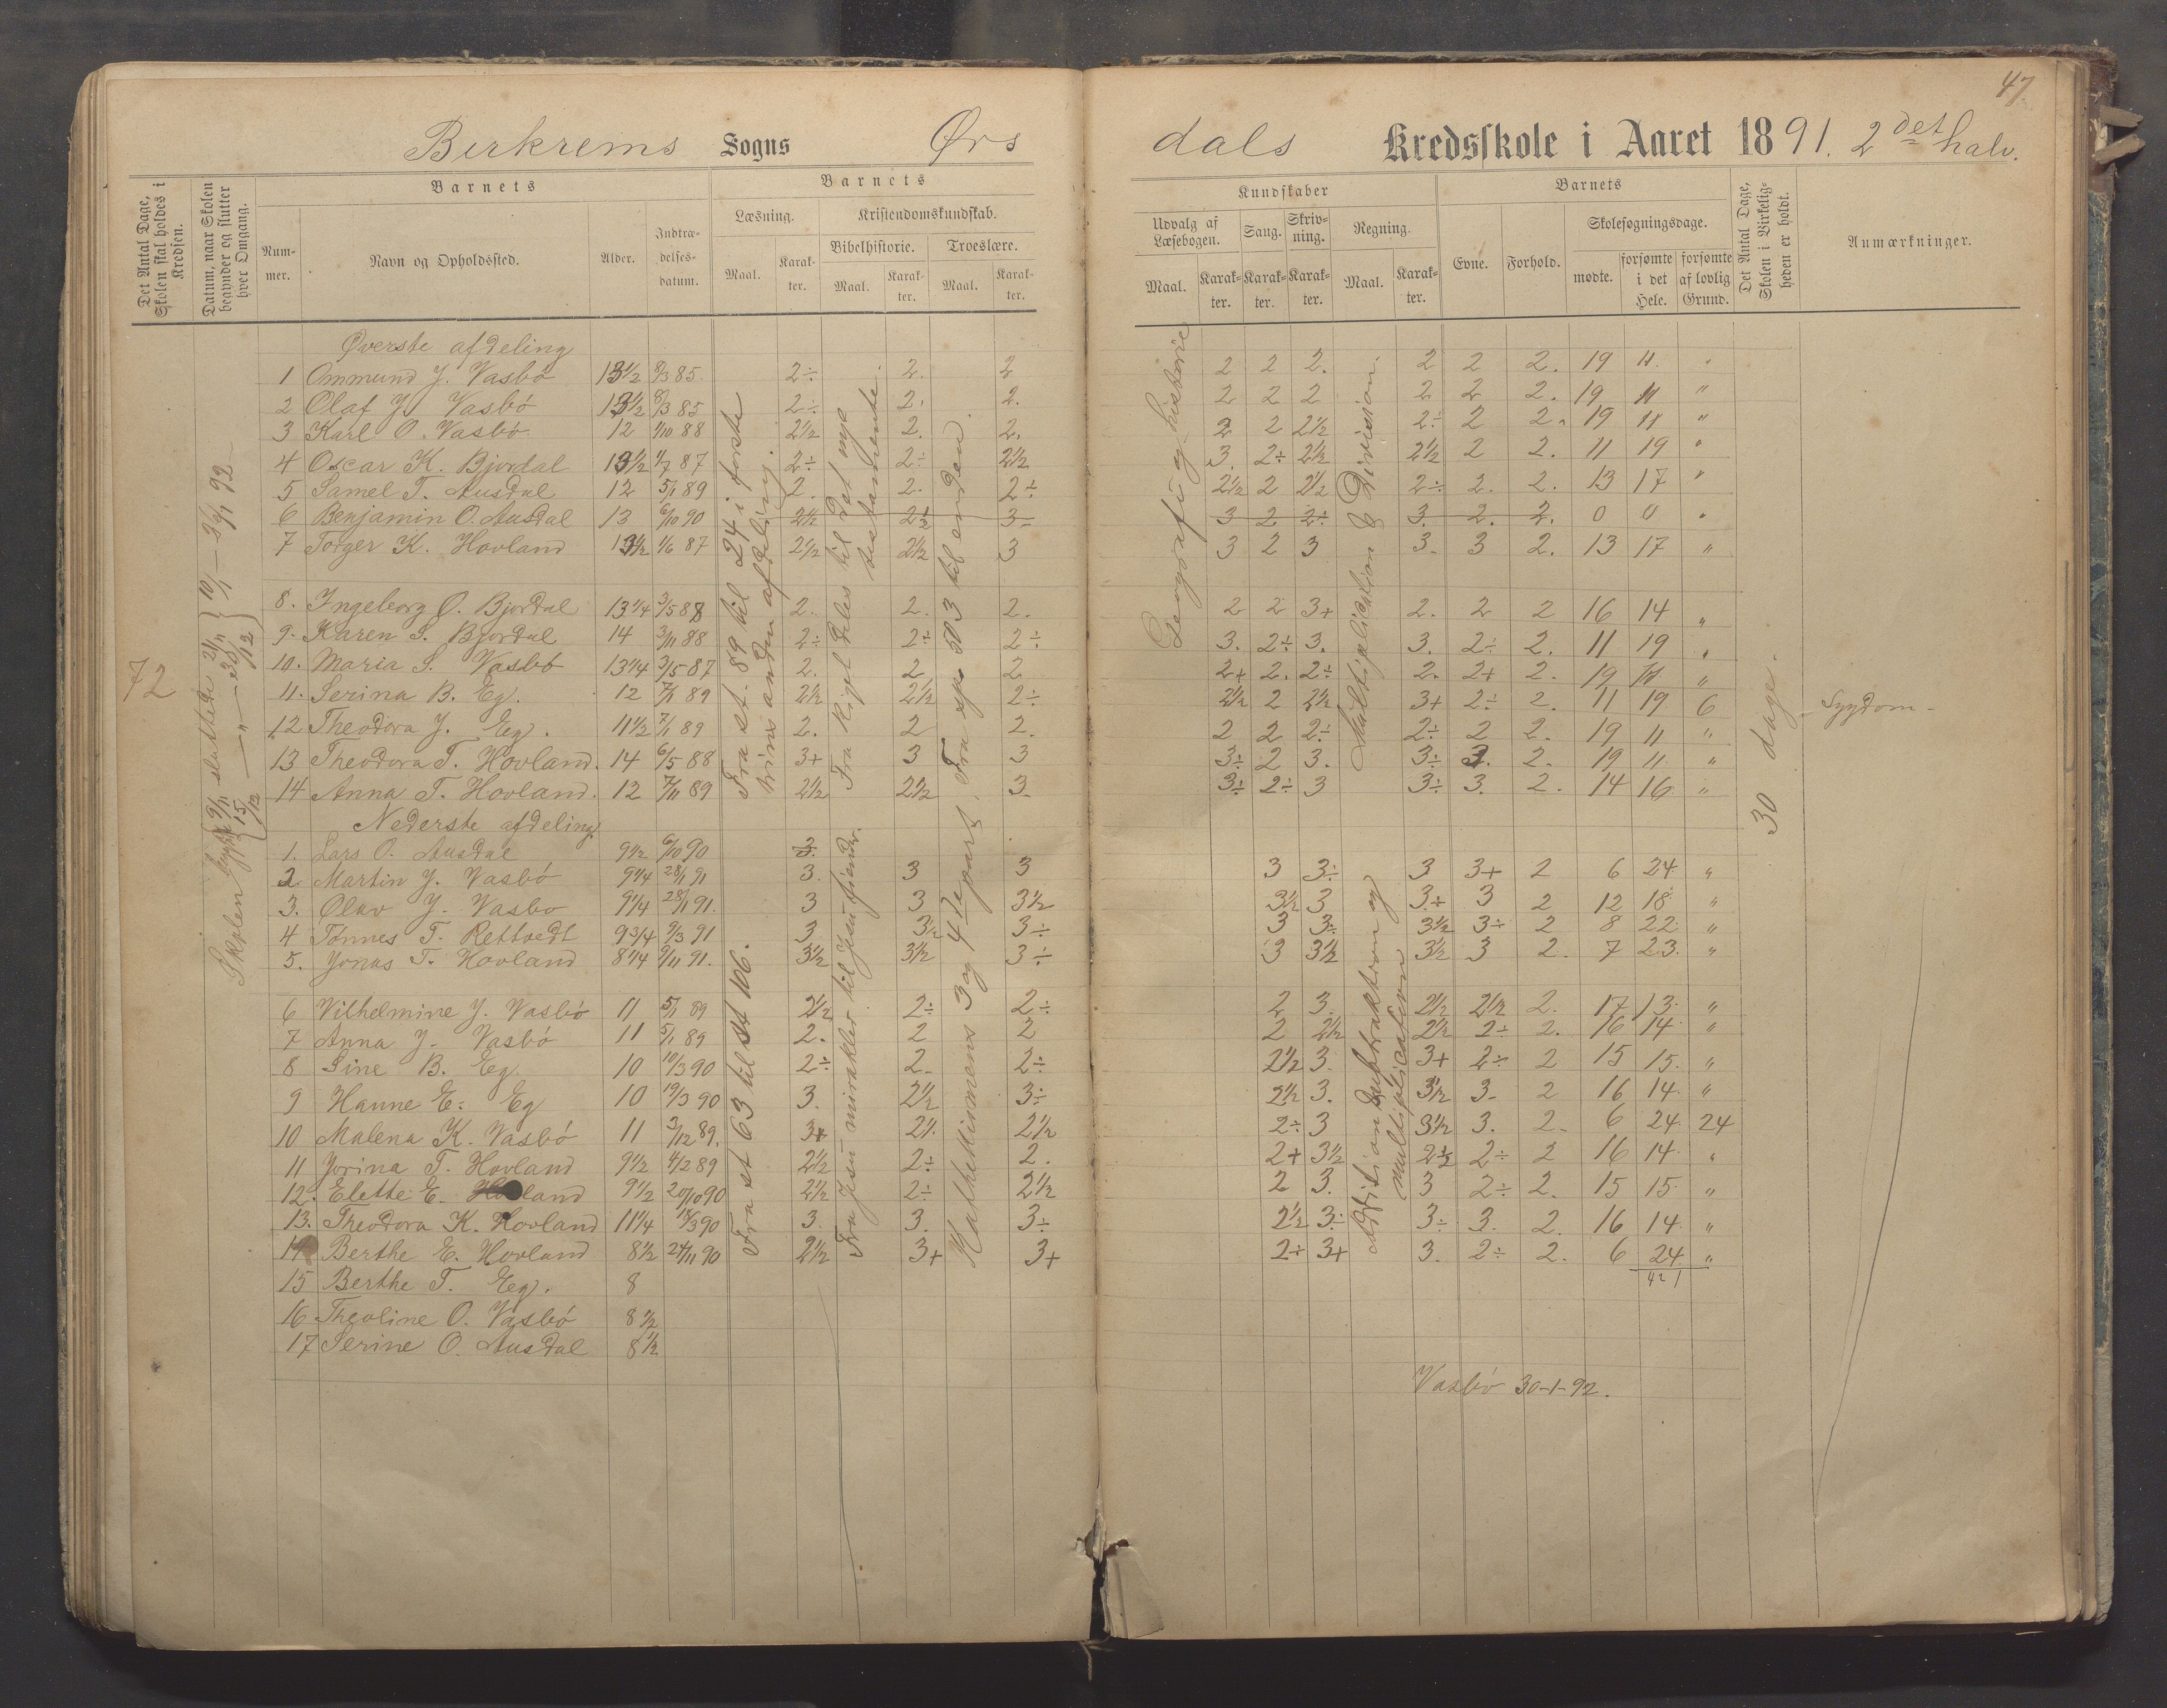 47
Birkrems Sogns Ørs
dals Kredsskole i Aaret 1891. 2det halv.
Det Antal Dage, Skolen skal holdes i Kredsen.
Datum, naar Skolen begynder og slutter hver Omgang.
Barnets
Nummer.
Navn og Opholdssted.
Alder.
Indtrædelsesdatum.
Barnets
Læsning.
Maal.
Karakter.
Kristendomskundskab.
Bibelhistorie.
Maal.
Karakter.
Troeslære.
Maal.
Karakter.
Kundskaber
Udvalg af Læsebogen.
Maal.
Karakter.
Sang.
Karakter.
Skrivning.
Karakter.
Regning.
Maal.
Karakter.
Barnets
Evne.
Forhold.
Skolesøgningsdage.
mødte.
forsømte i det Hele.
forsømte af lovlig Grund.
Det Antal Dage, Skolen i Virkeligheden er holdt.
Anmærkninger.
72
Øverste afdeling
1 Ommund J. Vasbø 13 1/2 8/3 85. 2÷ 2. 2 2 2 2. 2 2 2. 19 11. "
2 Olaf J. Vasbø 13 1/2 8/3 85 2÷ 2. 2. 2 2 2 2 2 2. 19 11 "
3 Karl O. Vasbø 12 1/10 88 2 1/2 2. 2. 2 2 2 1/2 2÷ 2 2. 19 11 "
4 Oscar K. Bjordal 13 1/2 1/7 87 2÷ 2÷ 2 1/2 3. 2÷ 2 1/2 2 1/2 2 2. 11 19 "
5 Samel T. Ausdal 12 5/1 89 2. 2. 2÷ 2 1/2 2 2 1/2 2÷ 2. 2. 13 17 "
6 Benjamin O. Ausdal 13 6/10 90 2 1/2 2 1/2 3- 3 2 2÷ 3. 2. 2. 0 0 "
7 Torger K. Hovland 13 1/2 1/6 87 2 1/2 2 1/2 3 3 2 3 3- 3 2. 13 17 "
8. Ingeborg O. Bjordal 13 1/4 3/5 88 2. 2. 2. 2 2 3+ 2. 2 2 16 14 "
9. Karen S. Bjordal 14 3/11 88 2÷ 2÷ 2÷ 3. 2÷ 3. 3. 2÷ 2. 11 19 "
10. Maria S. Vasbø 13 1/4 3/5 87 2. 2 2 2+ 2. 2÷ 2. 2+ 2. 19 11. "
11. Serina B. Eg. 12 7/1 89 2 1/2 2 1/2 2÷ 2 1/2 2 2 1/2 3+ 2÷ 2. 11 19. 6 Sygdom -
12 Theodora J. Eg. 11 1/2 7/1 89 2. 2 2. 2 2 2÷ 2÷ 2 2. 19 11 "
13 Theodora T. Hovland. 14 6/5 88 3+ 3 3 3÷ 2 3. 3÷ 3. 2. 19 11. "
14 Anna T. Hovland. 12 7/11 89 2 1/2 2 1/2 3- 3÷ 2÷ 3 3÷ 3. 2. 14 16. "
Nederste afdeling
1. Lars O. Ausdal 9 1/2 6/10 90 3.
2. Martin J. Vasbø 9 1/4 28/1 91 3. 3 3 3 3÷ 3 3+ 2 6 24. "
3. Olav J. Vasbø 9 1/4 28/1 91. 3 3 3 1/2 3 1/2 3 3+ 3 2 12 18. "
4 Tønnes T. Rettvedt 9 3/4 9/3 91 3 3 1/2 3÷ 3 3÷ 3 1/2 3÷ 2 8 22. "
5. Jonas T. Hovland 8 1/4 9/11 91. 3 1/2 3 1/2 3÷ 3 3 1/2 3 1/2 3 2. 7 23. "
6 Vilhelmine J. Vasbø 11 5/1 89 2 1/2 2÷ 2÷ 2 3. 2 1/2 2 1/2 2. 17 13. "
7 Anna J. Vasbø 11 5/1 89 2. 2 2 2 2 1/2 2 1/2 2÷ 2. 16 14. "
8 Sine B. Eg. 10 10/3 90 2÷ 2- 2÷ 2 1/2 3. 3+ 2÷ 2 15 15. "
9 Hanne E. Eg 10 19/3 90 3. 2 1/2 3÷ 2 1/2 3. 3 1/2 3- 2 16 14. "
10 Malena K. Vasbø 11 3/12 89. 3+ 2 1/2 2 1/2 2÷ 3 3 1/2 3. 2- 6 24 24
11 Jorina T. Hovland 9 1/2 4/2 89 2 1/2 2÷ 2. 2+ 3 1/2 2 1/2 2÷ 2 16 14. "
12. Elette E. Hovland 9 1/2 20/10 90 2 1/2 2÷ 2 1/2 2 3. 3 2÷ 2. 15 15. "
13. Theodora K. Hovland 11 1/4 18/3 90 3. 3. 3÷ 2 1/2 3÷ 3÷ 3. 2. 16 14. "
14 Berthe E. Hovland 8 1/2 24/11 90 2 1/2 3+ 3+ 2÷ 3+ 3. 2÷ 2. 6 24. "
421
15 Berthe T. Eg. 8
16 Theoline O. Vasbø 8 1/2
17 Serine O. Ausdal 8 1/2
Skolen bygt. 9/11 sluttede 21/11
15/12 — " — 23/12
19/1 — 30/1 92 —
Fra st. 89 til 24 i første
trins anden afdeling.
Fra Riget deles til det nye
testamente.
Fra sp. 503 til enden.
Geografi og historie
Multiplication & Division.
30 dage.
Fra st 63 til st 106.
Fra Jesu mirakler til Jesu fiender.
Kathekismens 3 og 4de part.
Addition Subtraktion og
multiplication
Vasbø 30-1-92.